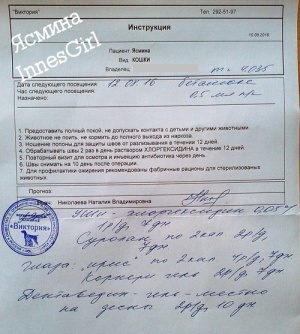 "Виктория" Тел. 292-51-97
Инструкция
10.08.2016
Ясмина
InnesGirl
Пациент: Ясмина
Вид: КОШКИ
Владелец
Дата следующего посещения: 12.08.16
Час следующего посещения:
Назначено:
1. Предоставить полный покой, не допускать контакта с детьми и другими животными.
2. Животное не поить, не кормить до полного выхода из наркоза.
3. Ношение попоны для защиты швов от разлизывания в течении 12 дней.
4. Обрабатывать швы 2 раз в день раствором ХЛОРГЕКСИДИНА в течении 12 дней.
5. Повторный визит для осмотра и инъекцию антибиотика через день.
6. Швы снимать на 10 день после операции.
7. Для профилактики ожирения рекомендованы фабричные рационы для стерилизованных
животных.
Прогноз
Врач Николаева Наталия Владимировна
Уши - хлоргексидин 0,05%
1р/д, 7дн
по 2кап 2р/д,
7дн
глаза: "ирис" по 2кап 4р/д, 7дн
Корнери гель 2р/д 7дн
Дентаведин-гель-местно
на десны 2р/д, 10 дн
"Виктория"